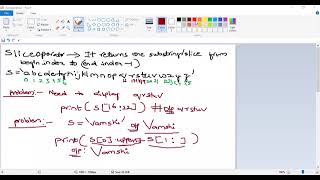 Sliceoperator → It returns one substring/slice from
begin index to (end index-1)
S='abcdefghijklmnopqrstuvwxyz'
0 1 2 3 4 5 6
problem:- Need to display qrstuv
print(S[16:22]) #o/p qrstuv
problem:- S='vamshi' o/p Vamshi
print(S[0].upper()+S[1:])
o/p: Vamshi